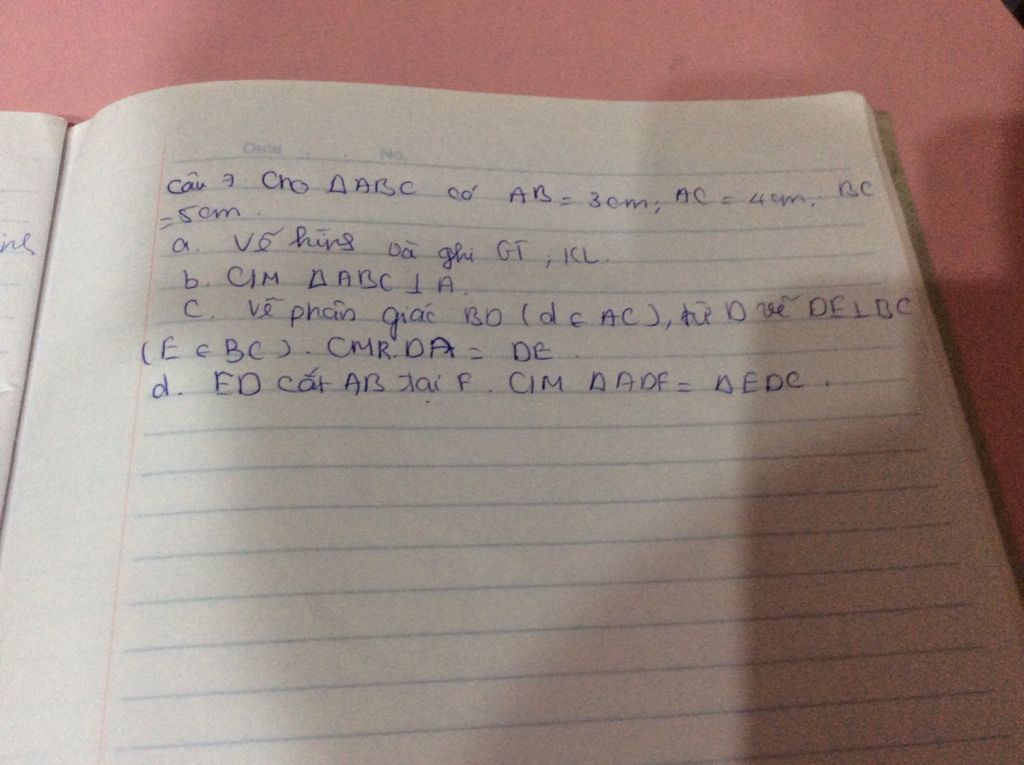 Date No.
Câu 7 Cho ΔABC có AB = 3cm; AC = 4cm; BC
= 5cm.
a. Vẽ hình và ghi GT, KL.
b. C/M ΔABC ⊥ A.
C. Vẽ phân giác BD (d ∈ AC), từ D vẽ DE ⊥ BC
(E ∈ BC). CMR. DA = DE.
d. ED cắt AB tại F. C/M ΔADF = ΔEDC.